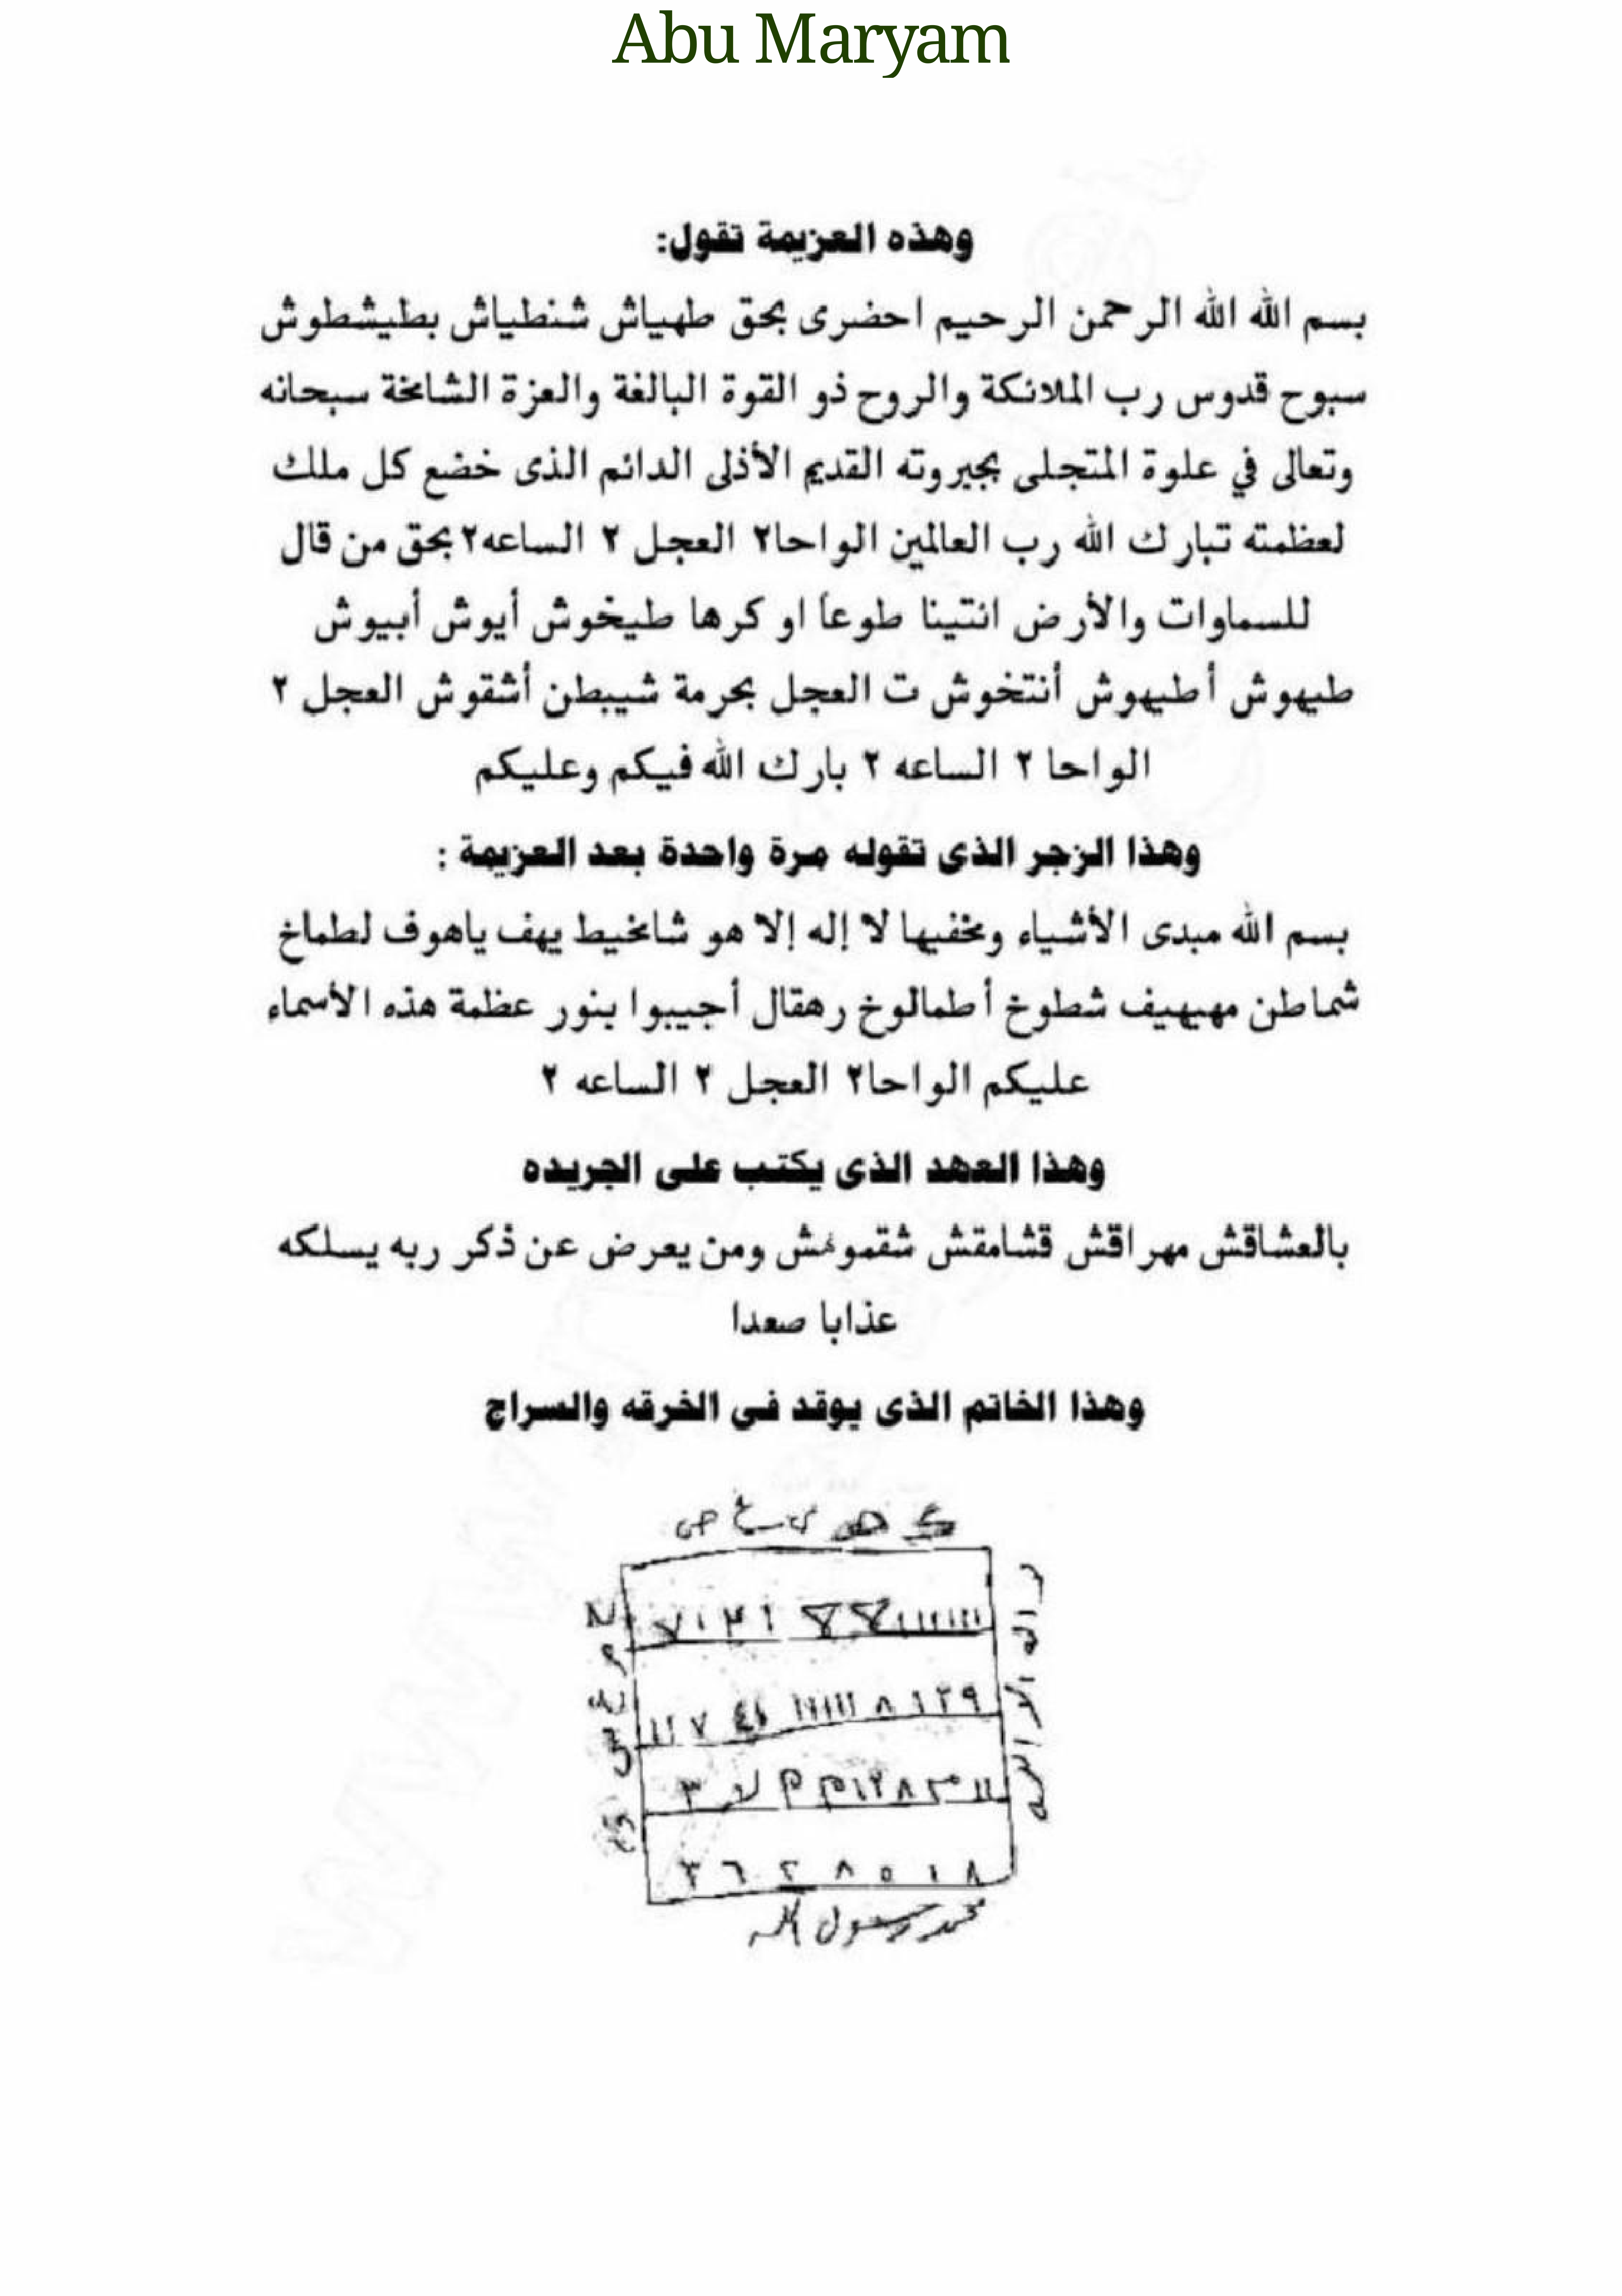 Abu Maryam
وهذه العزيمة تقول:
بسم الله الله الرحمن الرحيم احضرى بحق طهياش شنطياش بطيشطوش
سبوح قدوس رب الملائكة والروح ذو القوة البالغة والعزة الشامخة سبحانه
وتعالى في علوة المتجلى بجبروته القديم الأذلى الدائم الذى خضع كل ملك
لعظمته تبارك الله رب العالمين الواحا٢ العجل ٢ الساعه٢ بحق من قال
للسماوات والأرض ائتينا طوعا او كرها طيخوش أيوش أبيوش
طيهوش أطيهوش أنتخوش ت العجل بحرمة شيبطن أشقوش العجل ٢
الواحا ٢ الساعه ٢ بارك الله فيكم وعليكم
وهذا الزجر الذى تقوله مرة واحدة بعد العزيمة :
بسم الله مبدى الأشياء ومخفيها لا إله إلا هو شامخيط يهف ياهوف لطماخ
شماطن مهيهيف شطوخ أطمالوخ رهقال أجيبوا بنور عظمة هذه الأسماء
عليكم الواحا٢ العجل ٢ الساعه ٢
وهذا العهد الذى يكتب على الجريده
بالعشاقش مهراقش قشامقش ومن يعرض عن ذكر ربه يسلكه
عذابا صعدا
وهذا الخاتم الذى يوقد فى الخرقه والسراج
٩ ٢ ١ ٨ ١١١١١١ ٧ ١١
٨ ١ ٥ ٨ ٢ ٦ ٣
محمد رسول الله